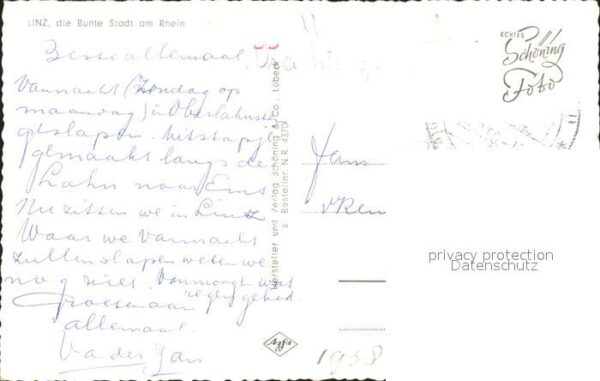 LINZ, die Bunte Stadt am Rhein
Beste allemaal,
Vannacht (Zondag op
maandag) in Oberlahnst
geslapen. Uitstapje
gemaakt langs de
Lahn naar Ems
Nu zitten we in Linz
Waar we vannacht
zullen slapen weten we
nog niet. Vanmorgen wat
regen gehad.
Groeten aan
allemaal.
Va der Jans
Hersteller und Verlag Schöning & Co., Lübeck
s Bestellnr. N.R. 4370
Agfa
ECHTES
Schöning
Foto
Fam
1958
privacy protection
Datenschutz